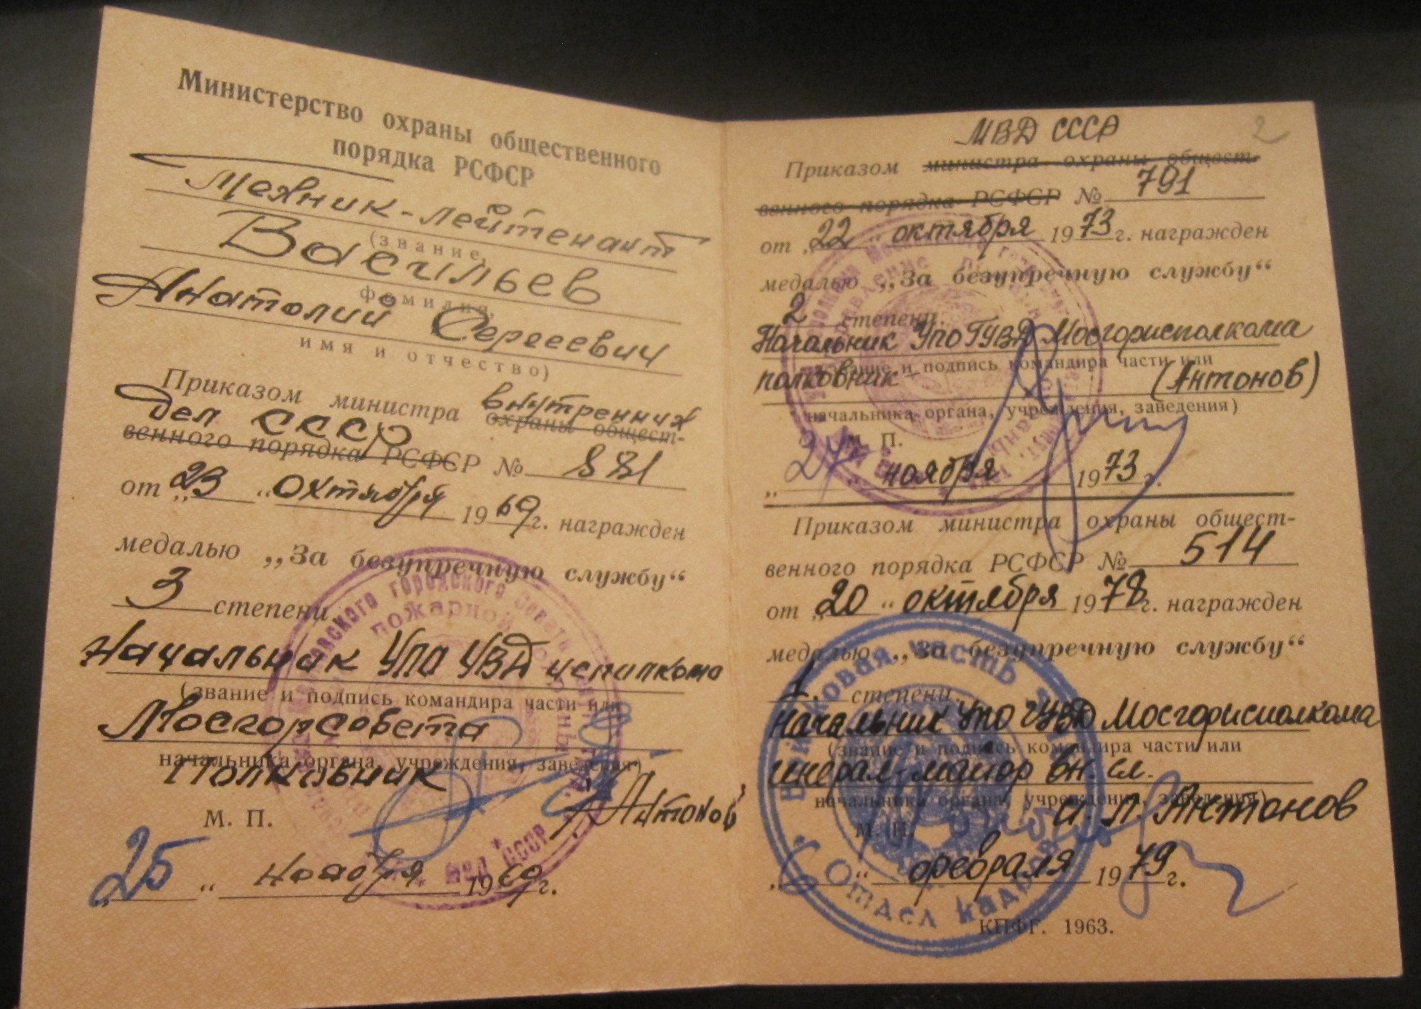 Министерство охраны общественного
порядка РСФСР
Техник-лейтенант
(звание,
Васильев
фамилия,
Анатолий Сергеевич
имя и отчество)
Приказом министра внутренних
охраны общест-
дел СССР
венного порядка РСФСР № 881
от „23“ октября 1969г. награжден
медалью „За безупречную службу“
3 степени
Начальник УПО УВД исполкома
(звание и подпись командира части или
Мосгорсовета
начальника органа, учреждения, заведения)
Полковник
Антонов
М. П.
„25“ ноября 1969г.
МВД СССР
2
Приказом министра охраны общест-
венного порядка РСФСР № 791
от „22“ октября 1973г. награжден
медалью „За безупречную службу“
2 степени.
Начальник УПО ГУВД Мосгорисполкома
звание и подпись командира части или
полковник (Антонов)
начальника органа, учреждения, заведения)
М. П.
„27“ ноября 1973г.
Приказом министра охраны общест-
венного порядка РСФСР № 514
от „20“ октября 1978г. награжден
медалью „За безупречную службу“
1 степени
Начальник УПО ГУВД Мосгорисполкома
(звание и подпись командира части или
генерал-майор вн. сл.
начальника органа, учреждения, заведения)
И. Л. Антонов
М. П.
„6“ февраля 1979г.
Отдел кадров
КПФГ. 1963.